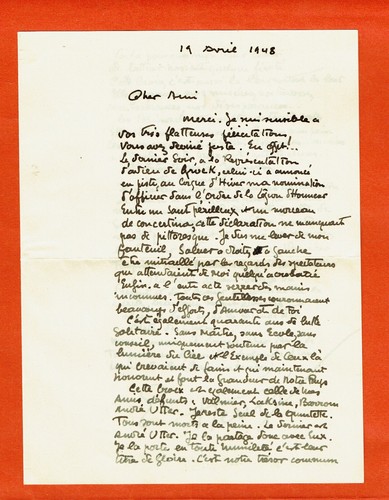 19 Avril 1948
Cher Ami
Merci. Je suis sensible à
vos très flatteuses félicitations,
Vous avez deviné juste. En effet...
Le dernier Soir, à la Représentation
d'adieu de Grock, celui-ci a annoncé
en piste, au Cirque d'Hiver ma nomination
d'officier dans l'ordre de la Légion d'Honneur
Entre un Saut périlleux et un morceau
de concertina, cette déclaration ne manquait
pas de pittoresque. Je dus me lever de mon
fauteuil, Saluer à droite, à Gauche
être mitraillé par les regards des spectateurs
qui attendaient de moi quelque acrobatie
Enfin. à l'entr'acte serrer des mains
inconnues. Toutes ces gentillesses couronnaient
beaucoup d'efforts, d'Amour et de foi
C'est également quarante ans de lutte
Solitaire. Sans Maîtres, sans École, sans
conseil, uniquement soutenu par la
lumière du Ciel et l'Exemple de Ceux-là
qui crevaient de faim et qui maintenant
honorent et font la Grandeur de Notre Pays
Cette Croix est également celle de mes
Amis défunts. Vallmier, Zaksine,
André Utter. Je reste Seul de la quintette.
Tous sont morts à la peine. Le dernier est
André Utter. Je la partage donc avec Eux.
Je la porte en toute humilité c'est leur
titre de Gloire. C'est notre trésor commun